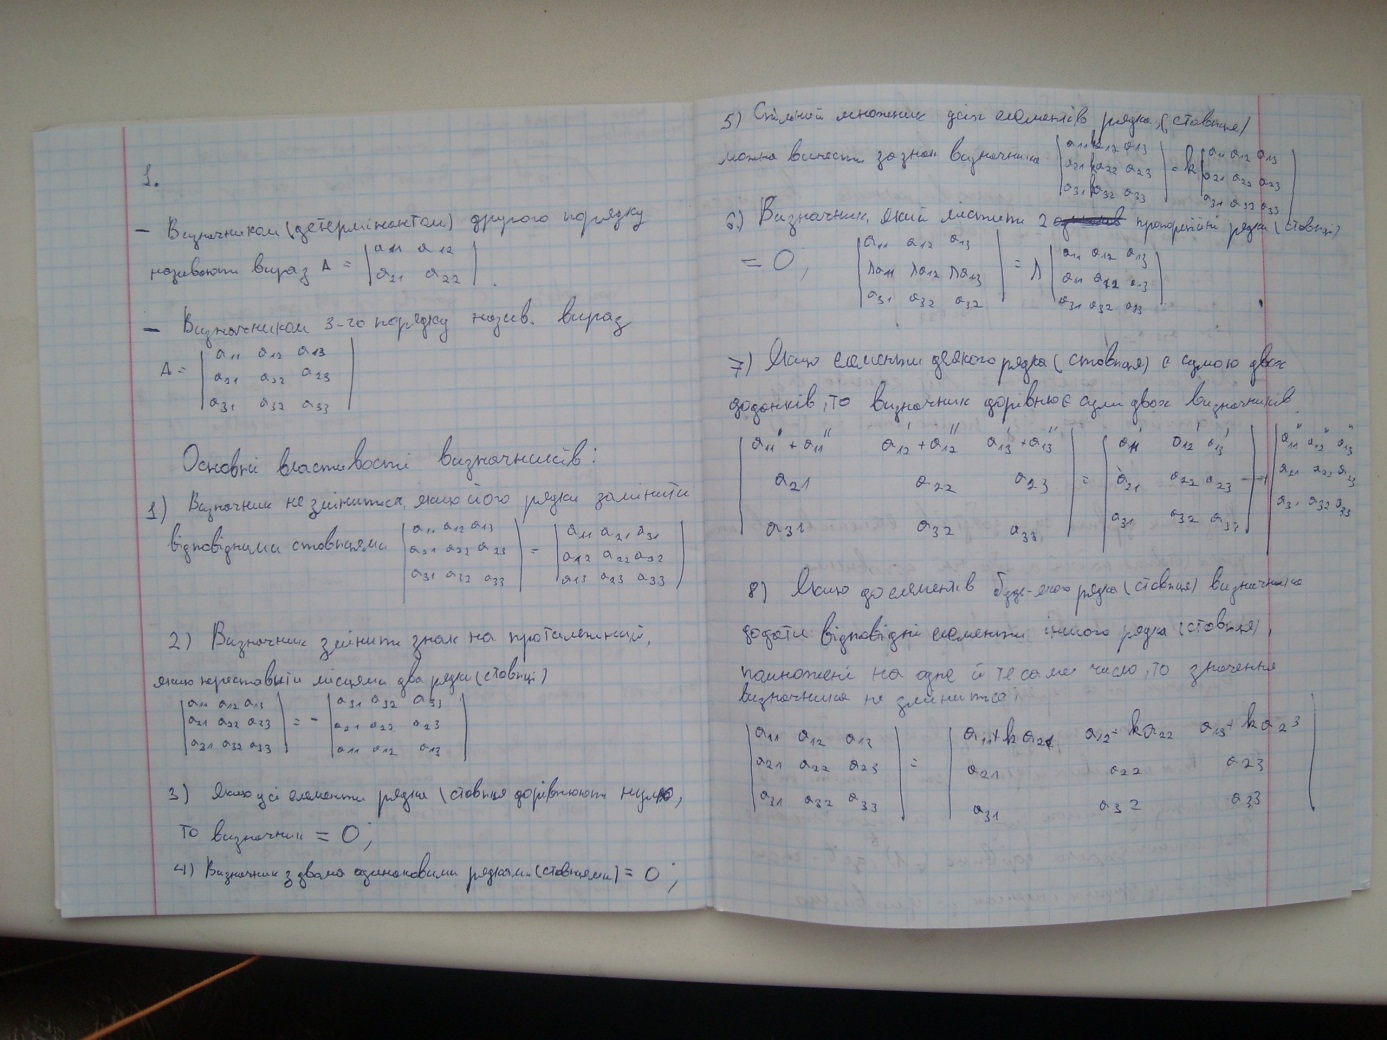 1.
– Визначником (детермінантом) другого порядку
називають вираз Δ = | a11 a12 |
| a21 a22 | .
– Визначником 3-го порядку назив. вираз
Δ = | a11 a12 a13 |
| a21 a22 a23 |
| a31 a32 a33 |
Основні властивості визначників:
1) Визначник не зміниться, якщо його рядки замінити
відповідними стовпцями | a11 a12 a13 | = | a11 a21 a31 |
| a21 a22 a23 | | a12 a22 a32 |
| a31 a32 a33 | | a13 a23 a33 |
2) Визначник змінить знак на протилежний,
якщо переставити місцями два рядки (стовпці)
| a11 a12 a13 | = - | a31 a32 a33 |
| a21 a22 a23 | | a21 a22 a23 |
| a21 a32 a33 | | a11 a12 a13 |
3) Якщо усі елементи рядка \ стовпця дорівнюють нулю,
то визначник = 0;
4) Визначник з двома однаковими рядками (стовпцями) = 0;
5) Спільний множник всіх елементів рядка (стовпця)
можна винести за знак визначника | a11k a12 a13 | = k | a11 a12 a13 |
| a21k a22 a23 | | a21 a22 a23 |
| a31k a32 a33 | | a31 a32 a33 |
6.) Визначник, який містить 2 пропорційні рядки (стовпці)
= 0; | a11 a12 a13 | = λ | a11 a12 a13 |
| λa11 λa12 λa13 | | a11 a12 a13 |
| a31 a32 a32 | | a31 a32 a33 |
7) Якщо елементи деякого рядка (стовпця) є сумою двох
доданків, то визначник дорівнює сумі двох визначників.
| a11' + a11'' a12' + a12'' a13' + a13'' | = | a11' a12' a13' | + | a11'' a12'' a13'' |
| a21 a22 a23 | | a21 a22 a23 | | a21 a22 a23 |
| a31 a32 a33 | | a31 a32 a33 | | a31 a32 a33 |
8) Якщо до елементів будь-якого рядка (стовпця) визначника
додати відповідні елементи іншого рядка (стовпця),
помножені на одне й те саме число, то значення
визначника не зміниться
| a11 a12 a13 | = | a11+ka21 a12+ka22 a13+ka23 |
| a21 a22 a23 | | a21 a22 a23 |
| a31 a32 a33 | | a31 a32 a33 |